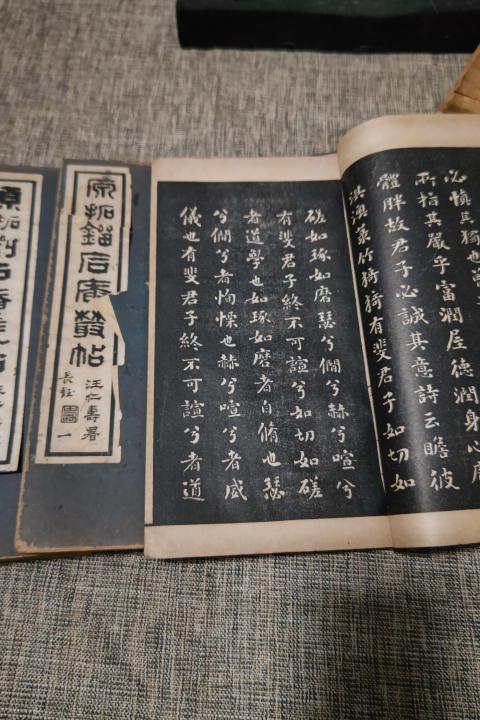 必慎其獨也曾
所指其嚴乎富潤屋德潤身心廣
體胖故君子必誠其意詩云瞻彼
淇澳菉竹猗猗有斐君子如切如
磋如琢如磨瑟兮僩兮赫兮喧兮
有斐君子終不可諠兮如切如磋
者道學也如琢如磨者自脩也瑟
兮僩兮者恂慄也赫兮喧兮者威
儀也有斐君子終不可諠兮者道
原拓鎦石庵叢帖
汪仁壽署
一
原拓